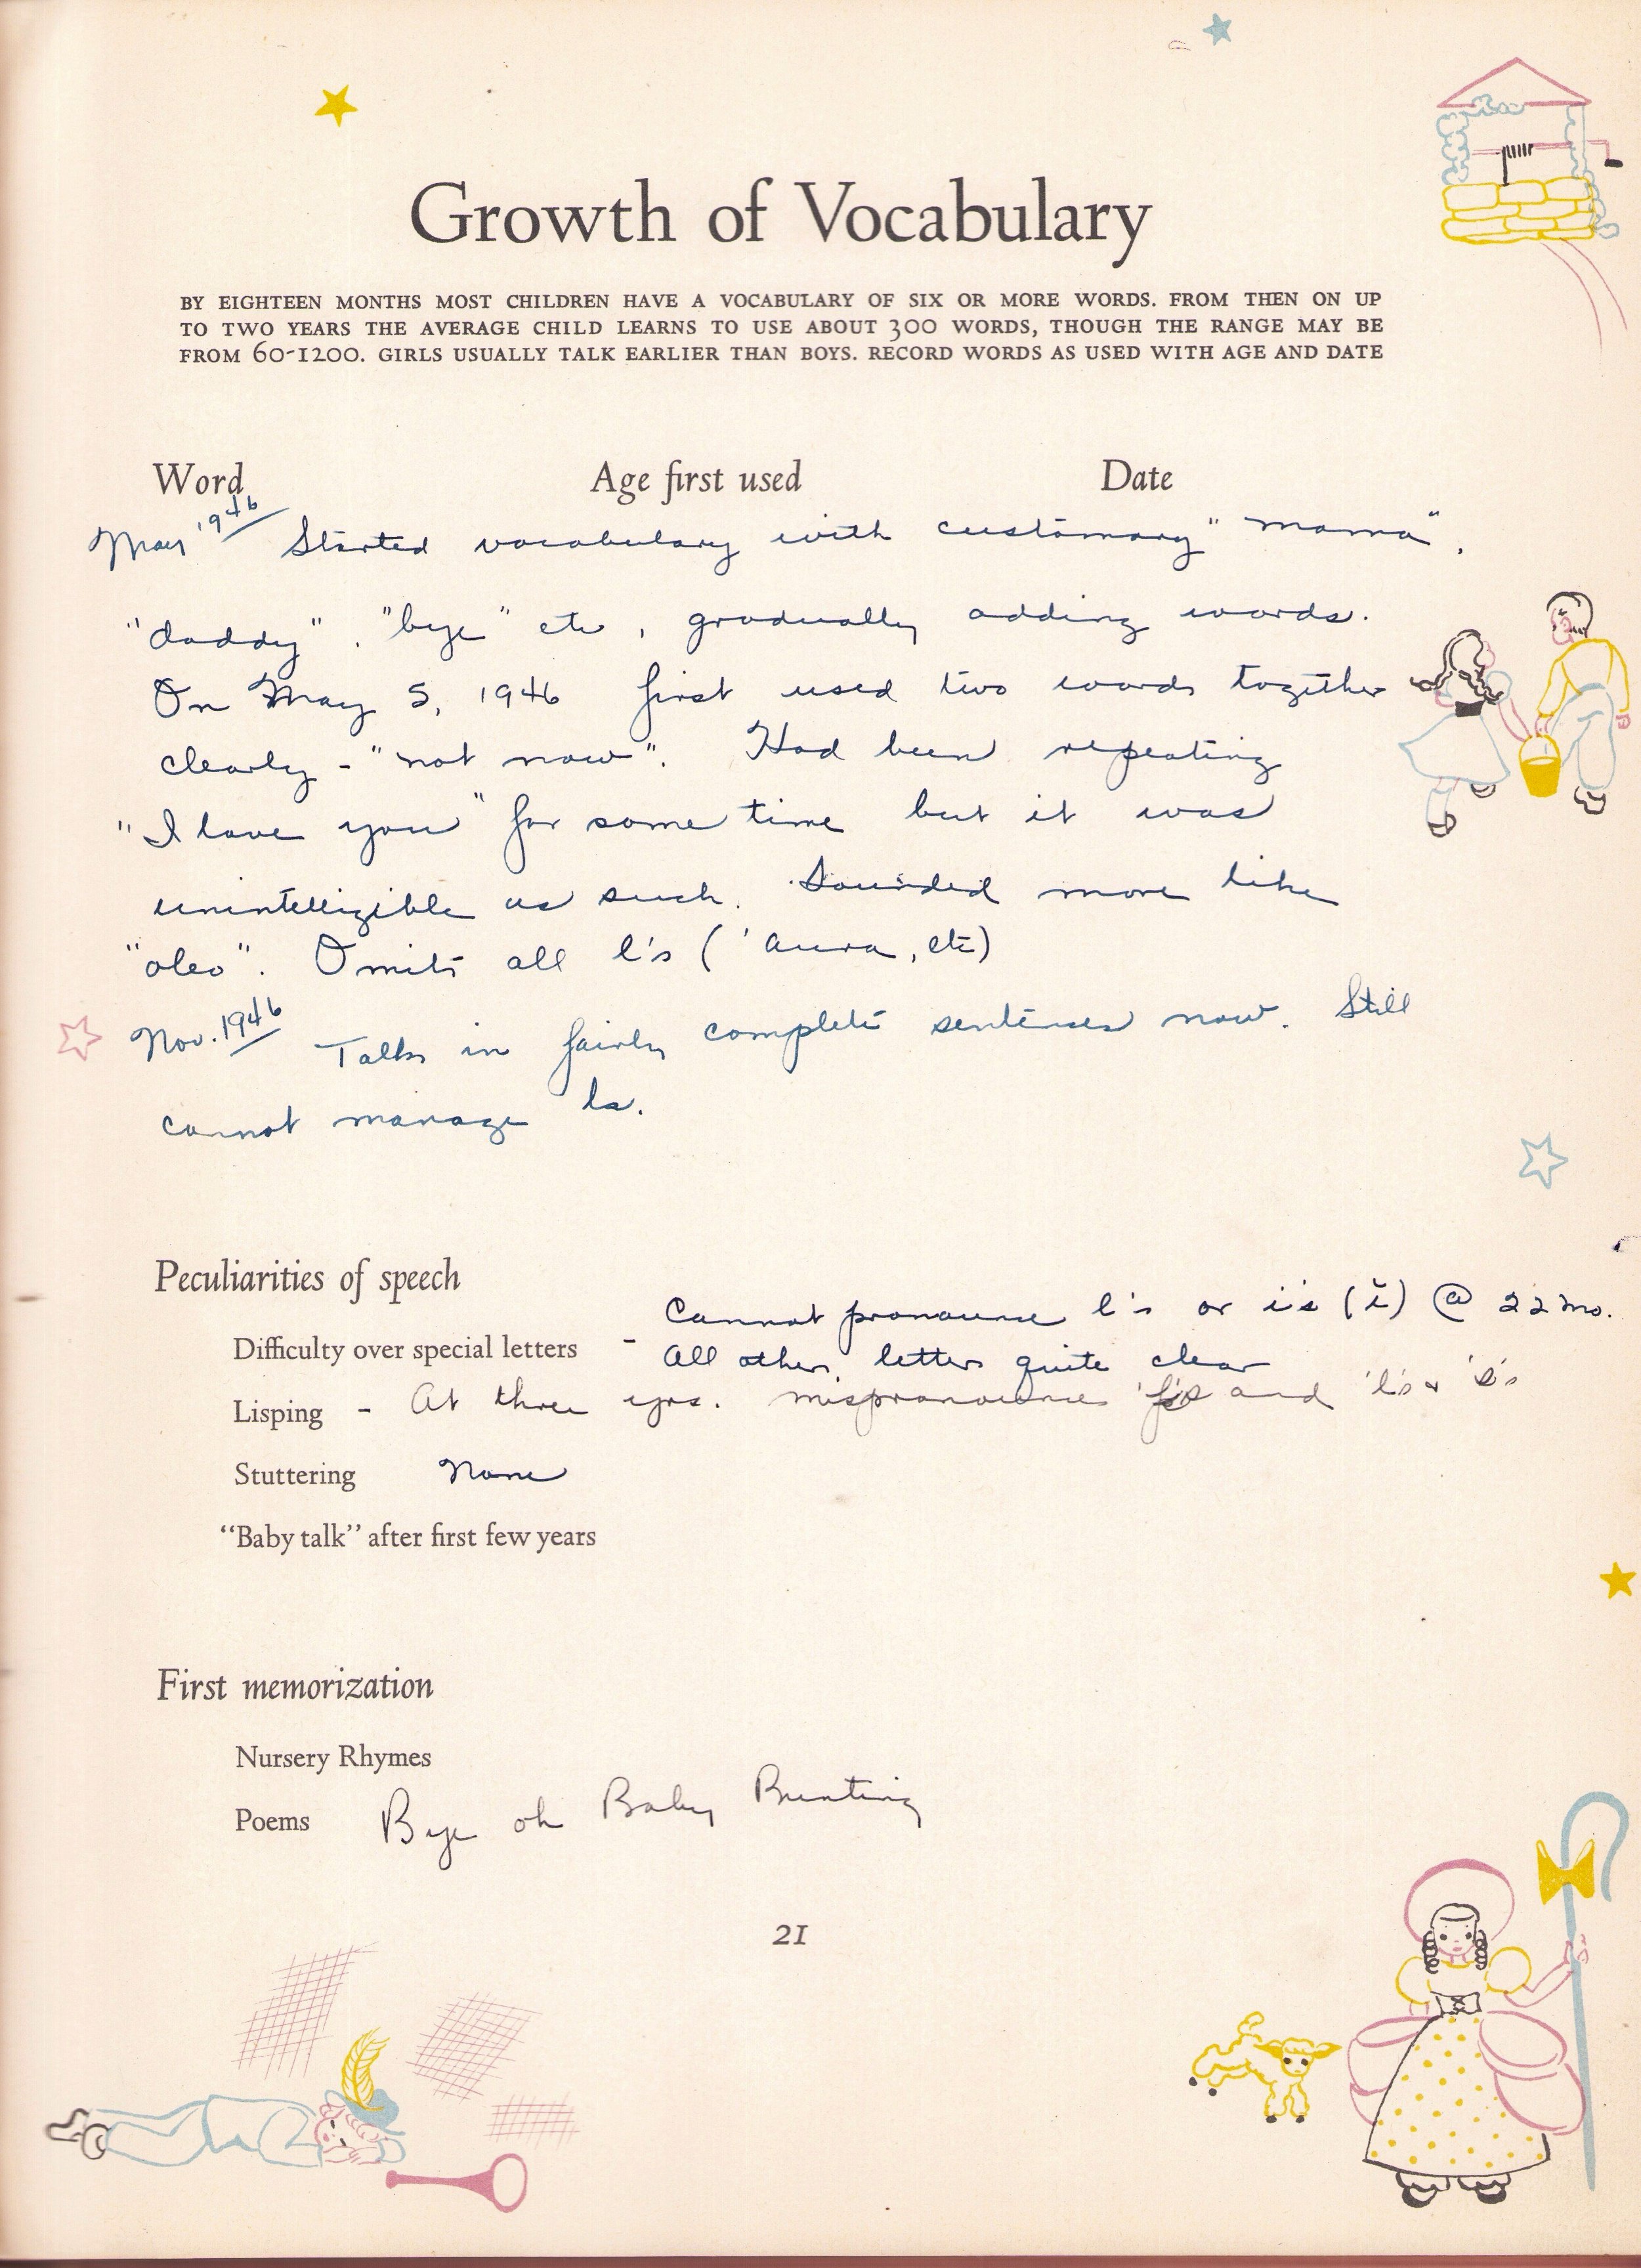 Growth of Vocabulary
BY EIGHTEEN MONTHS MOST CHILDREN HAVE A VOCABULARY OF SIX OR MORE WORDS. FROM THEN ON UP
TO TWO YEARS THE AVERAGE CHILD LEARNS TO USE ABOUT 300 WORDS, THOUGH THE RANGE MAY BE
FROM 60-1200. GIRLS USUALLY TALK EARLIER THAN BOYS. RECORD WORDS AS USED WITH AGE AND DATE
Word Age first used Date
May 1946 Started vocabulary with customary "mama",
"daddy", "bye" etc, gradually adding words.
On May 5, 1946 first used two words together
clearly - "not now". Had been repeating
"I love you" for some time but it was
unintelligible as such. Sounded more like
"oleo". Omits all l's ('aura, etc)
Nov. 1946 Talks in fairly complete sentences now. Still
cannot manage ls.
Peculiarities of speech
Cannot pronounce l's or i's (ĭ) @ 22 mo.
Difficulty over special letters - All other letters quite clear
Lisping - At three yrs. mispronounces and 'l's & 's's
Stuttering None
"Baby talk" after first few years
First memorization
Nursery Rhymes
Poems Bye oh Baby Bunting
21